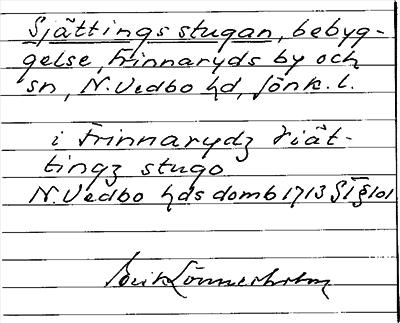 Sjättingsstugan, bebyg-
gelse, Frinnaryds by och
sn, N. Vedbo hd, Jönk. l.
i Frinnarydz siät-
tingz stugo
N. Vedbo hds domb 1713 ST § 101
Erik Lönnerholm